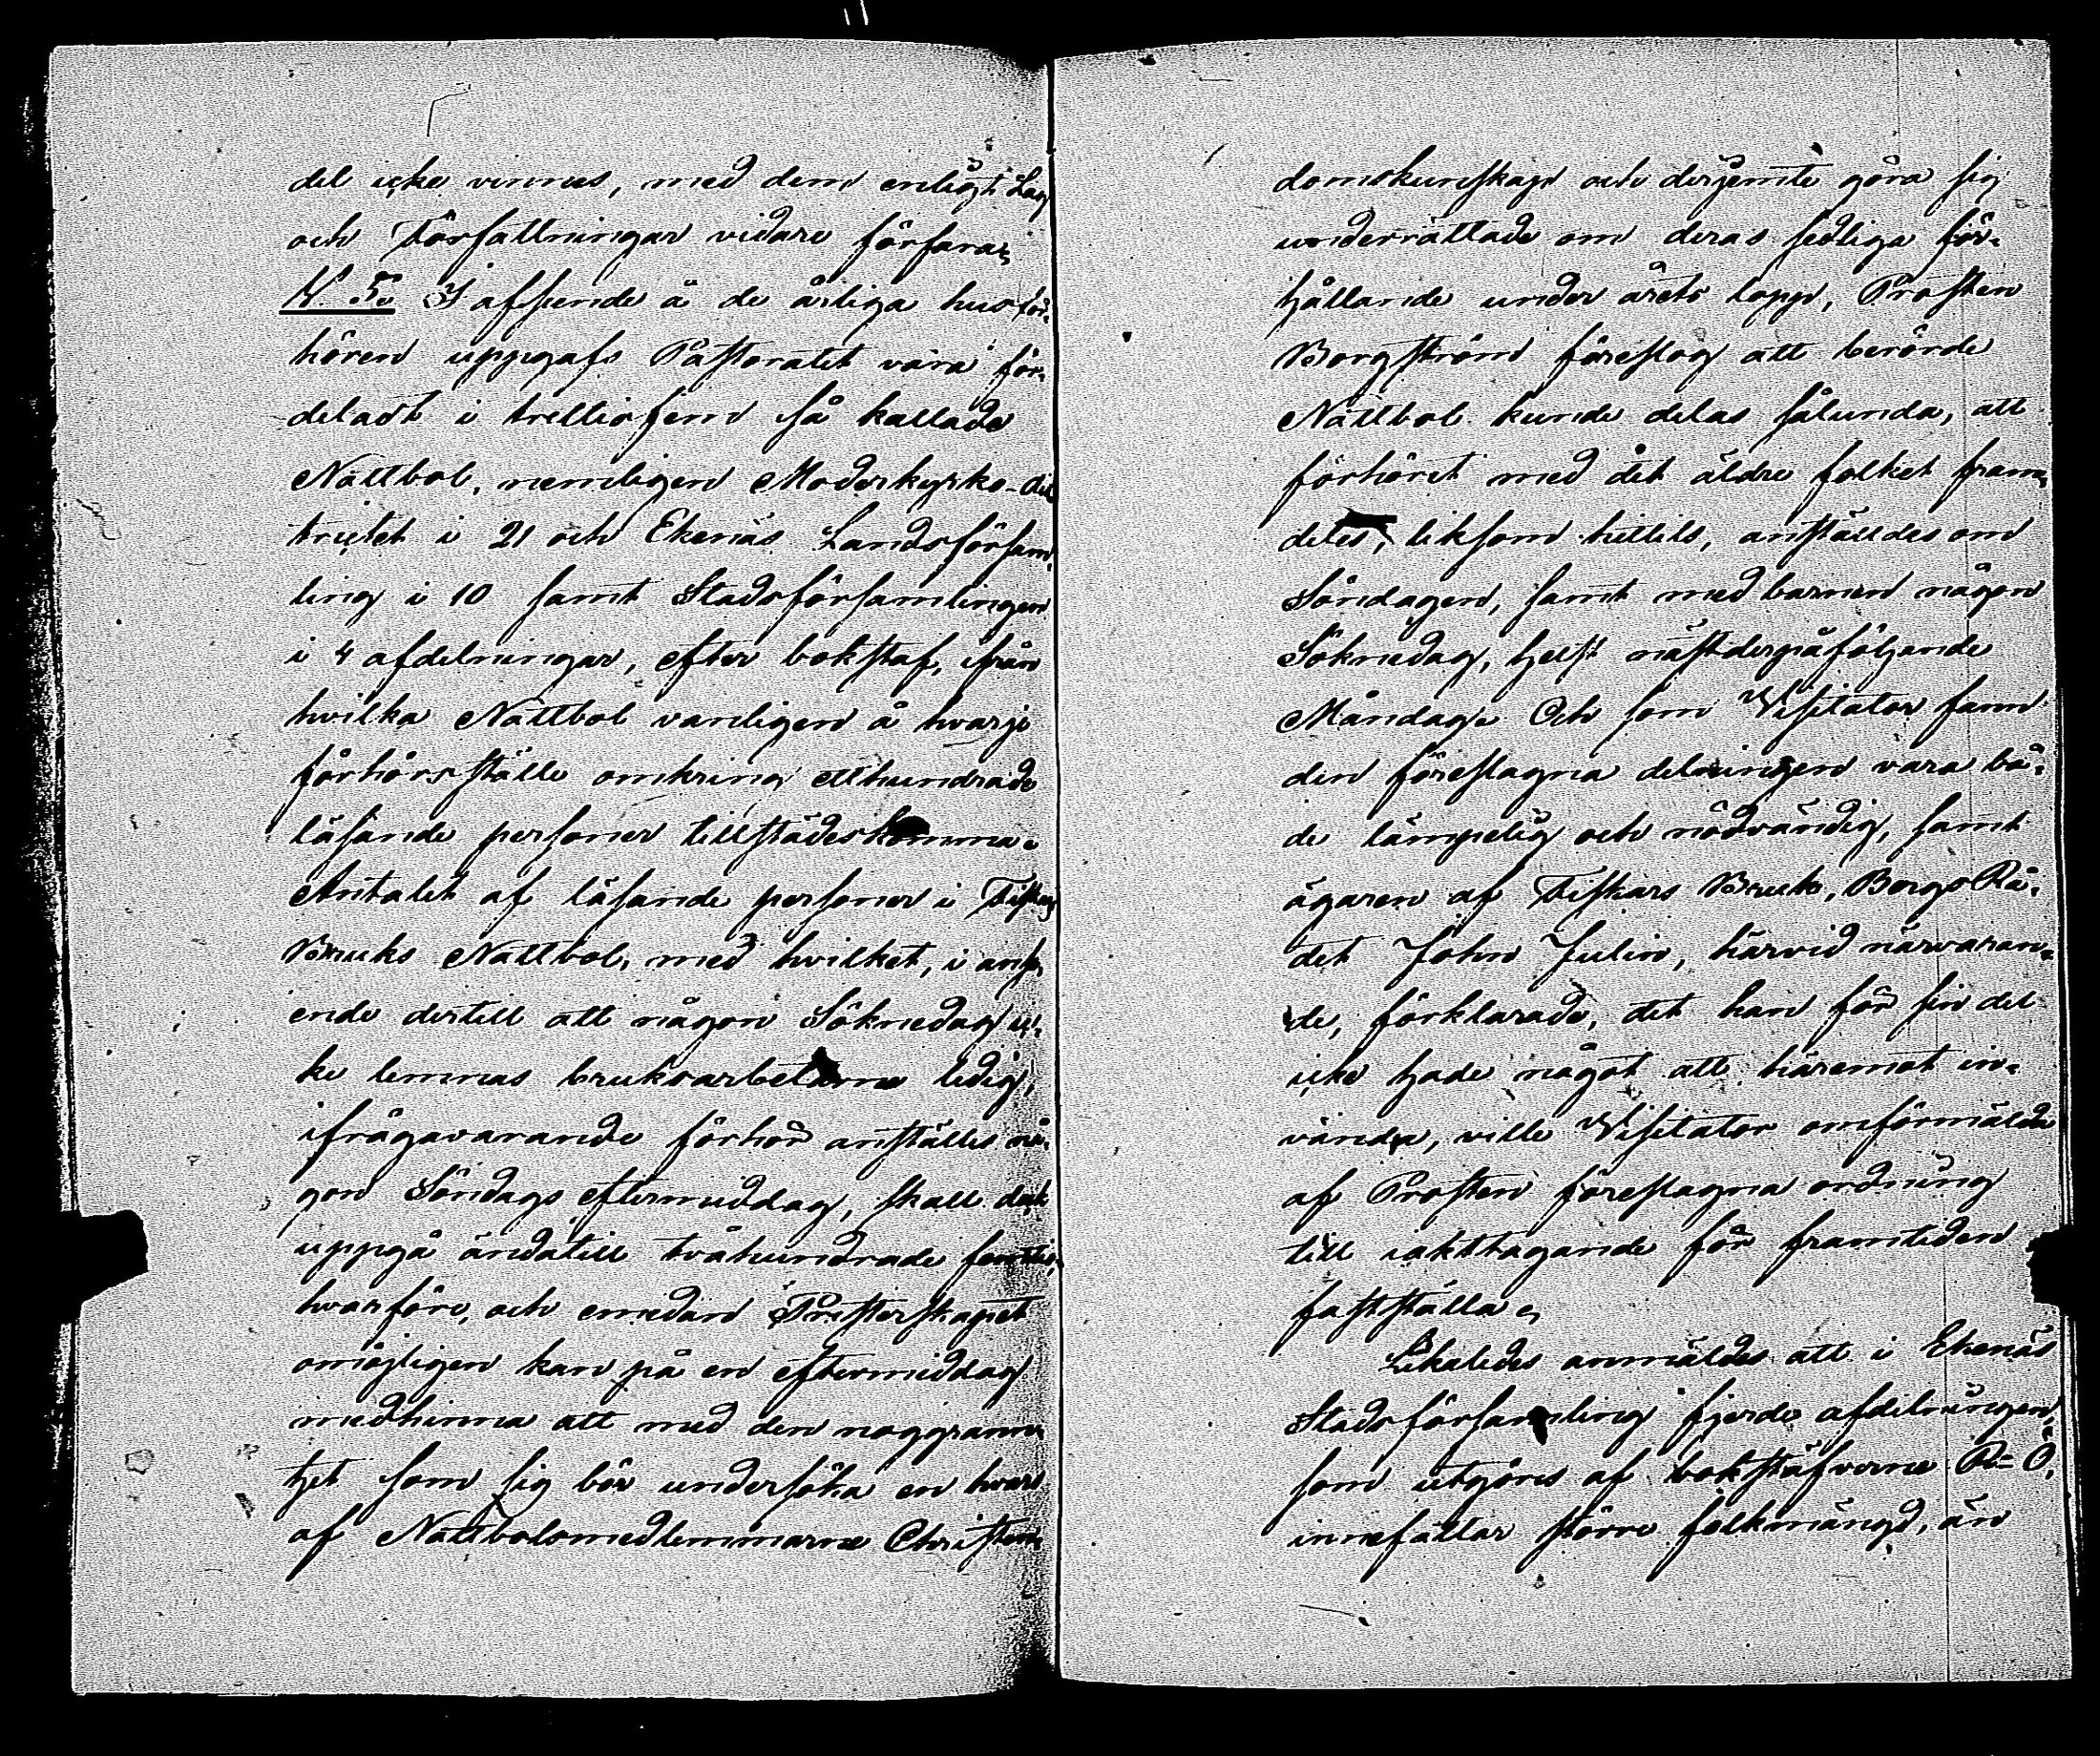 del icke vinnes, med dem enligt Lag
och Författningar vidare förfaras
§. 5. I afseende å de årliga husför-
hören uppgafs Pastoratet vara för-
deladt i trettiofem så kallade
Nattbol, nemligen Moderkyrko-dis
trictet i 21 och Ekenäs Landsförsam-
ling i 10 samt Stadsförsamlingen
i 4 afdelningar, efter bokstaf, ifrån
hvilka Nattbol vanligen å hvarje
förhörsställe omkring etthundrade
läsande personer tillstädeskomma.
Antalet af läsande personer i Fiskars
Bruks Nattbol, med hvilket, i anse-
ende dertill att någon Söknedag ic-
ke lemnas bruksarbetarne ledig,
ifrågavarande förhör anställes nå-
gon Söndags eftermiddag, skall dock
uppgå ändatill tvåhundrade femtio,
hvarföre, och emedan Presterskapet
omöjligen kan på en eftermiddag
medhinna att med den noggrann-
het som sig bör undersöka en hvar
af Nattbolsmedlemmarne Christen-
domskunskap och derjemte göra sig
underrättade om deras sedliga för-
hållande under årets lopp, Prosten
Borgström föreslog att berörde
Nattbol kunde delas sålunda, att
förhöret med det äldre folket fram-
deles, liksom hittils, anställdes om
Söndagen, samt med barnen någon
Söknedag, helst nästderpåföljande
Måndag. Och som Visitator fann
den föreslagna delningen vara bå-
de lämpelig och nödvändig, samt
ägaren af Fiskars Bruk, BergsRå-
det John Julin, härvid närvaran-
de, förklarade, det han för sin del
icke hade något att häremot in-
vända, ville Visitator omförmälde
af Prosten föreslagna ordning
till iakttagande för framtiden
fastställa.
Likaledes anmäldes att i Ekenäs
Stadsförsamling fjerde afdelningen,
som utgöres af bokstäfverne R-Ö,
innefattar större folkmängd, än